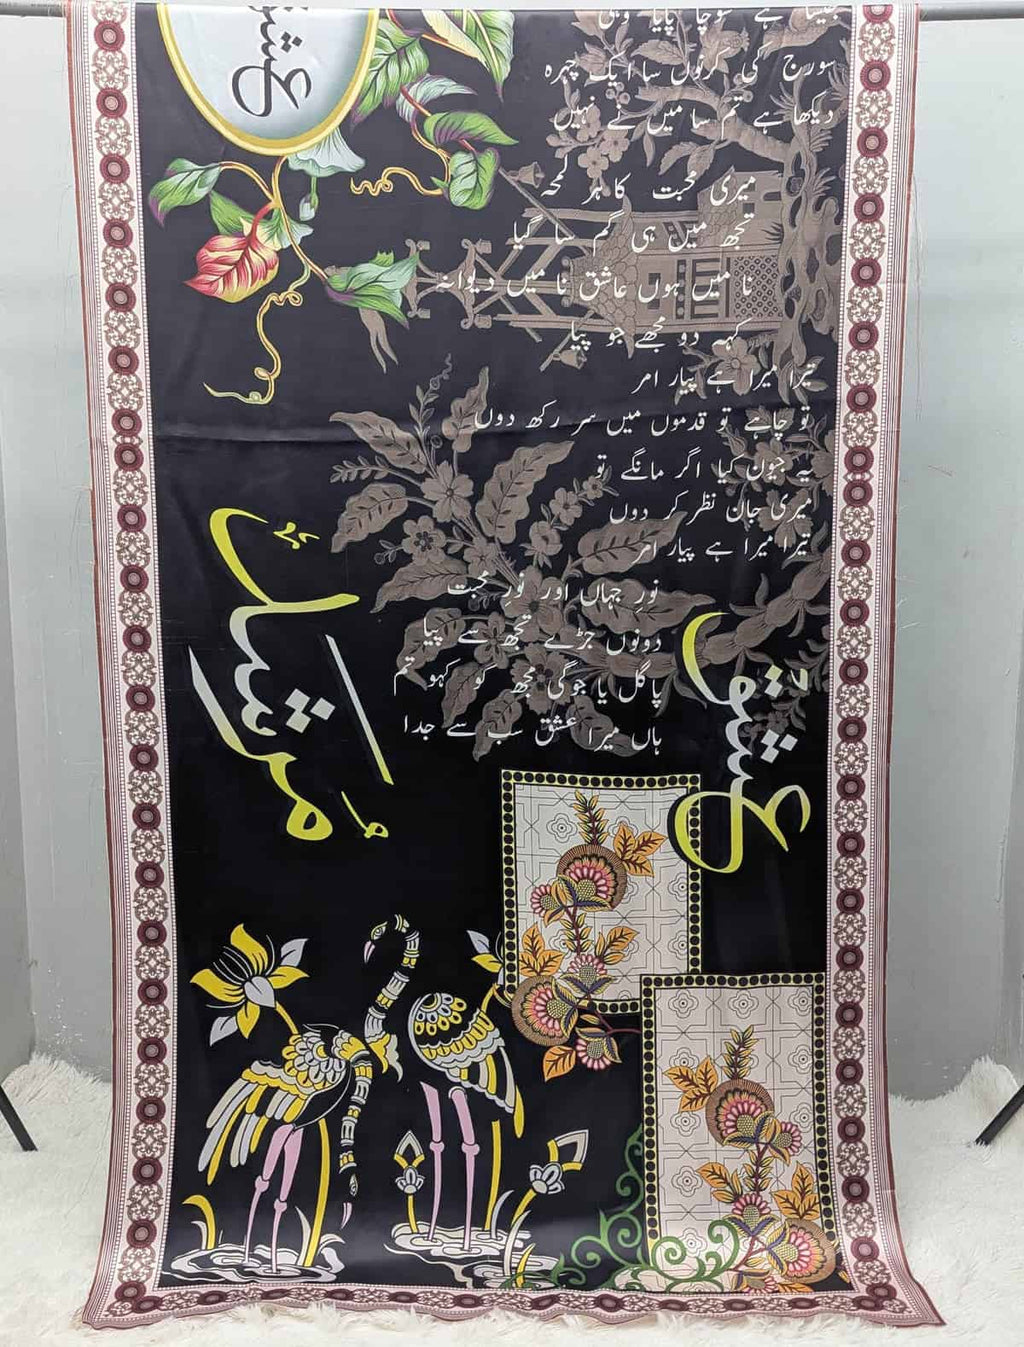 عشق
جینا ہے سوچا پایا وہی
سورج کی کرنوں سا ایک چہرہ
دیکھا ہے تم سا میں نے نہیں
میری محبت کا ہر لمحہ
تجھ میں ہی گم سا گیا
نا میں ہوں عاشق نا میں دیوانہ
کہہ دو مجھے جو پیا
تیرا میرا ہے پیار امر
تو چاہے تو قدموں میں سر رکھ دوں
یہ جیون کیا اگر مانگے تو
میری جان نظر کر دوں
تیرا میرا ہے پیار امر
نور جہاں اور نور محبت
دونوں جڑے تجھ سے پیا
پاگل یا جوگی مجھ کو کہو تم
ہاں میرا عشق سب سے جدا
مُرشد
عشق